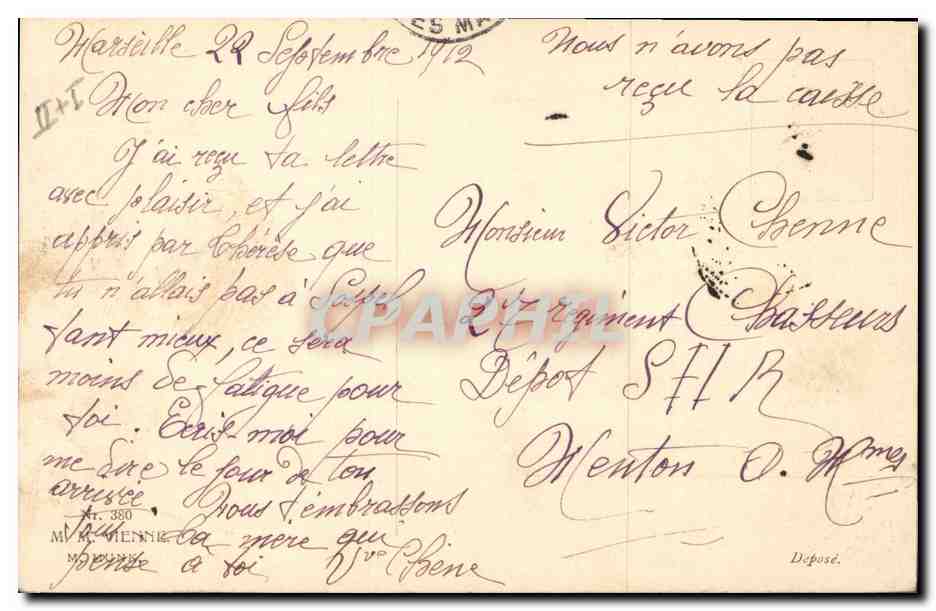 Marseille 22 Septembre 1912
Mon cher fils
II+I
J'ai reçu ta lettre
avec plaisir, et j'ai
appris par Thérèse que
tu n'allais pas à Sospel
tant mieux, ce sera
moins de fatigue pour
toi. Ecris-moi pour
me dire le jour de ton
arrivée. Nous t'embrassons
tous Ta mère qui
pense à toi Vve Chene
Nous n'avons pas
reçu la caisse
ES MA
Monsieur Victor Chenne
27 régiment Chasseurs
Dépot S H R
Menton A. Mmes
CPAPHIL
Nr. 380
M. M. VIENNE
M. MUNK
Déposé.